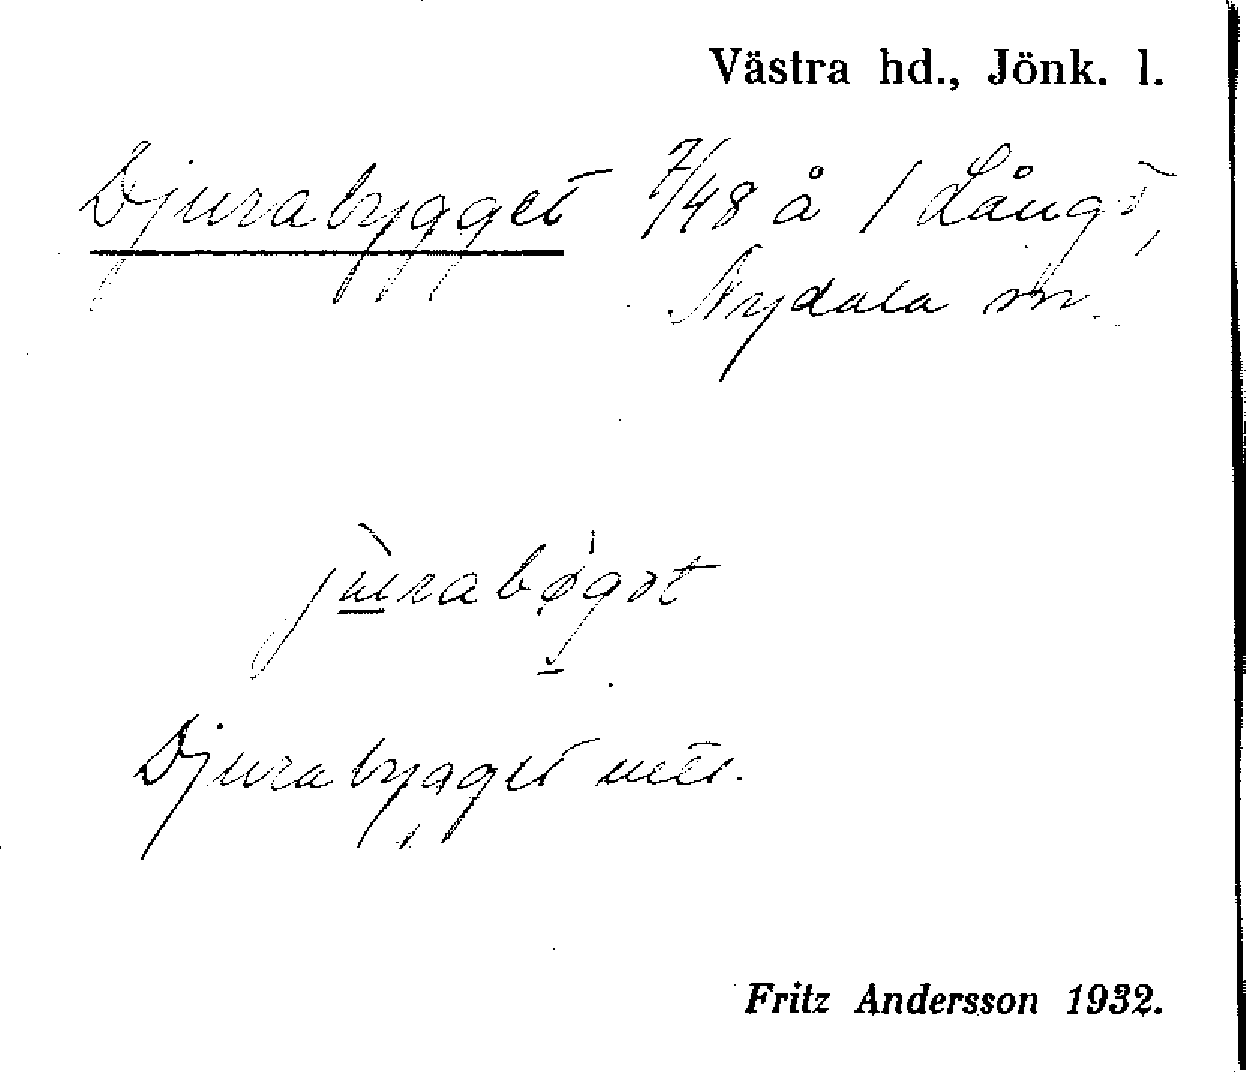 Västra hd., Jönk. l.
Djurabygget 7/48 å 1 Långö,
Nydala sn.
jùrabǿgət
Djurabygget
Fritz Andersson 1932.